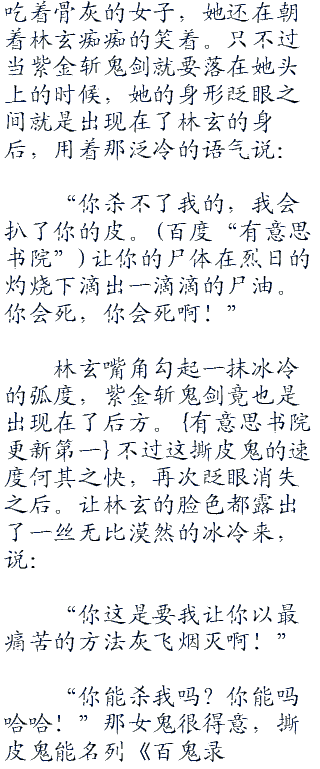 吃着骨灰的女子，她还在朝
着林玄痴痴的笑着。只不过
当紫金斩鬼剑就要落在她头
上的时候，她的身形眨眼之
间就是出现在了林玄的身
后，用着那泛冷的语气说：
“你杀不了我的，我会
扒了你的皮。(百度“有意思
书院”)让你的尸体在烈日的
灼烧下滴出一滴滴的尸油。
你会死，你会死啊！”
林玄嘴角勾起一抹冰冷
的弧度，紫金斩鬼剑竟也是
出现在了后方。{有意思书院
更新第一}不过这撕皮鬼的速
度何其之快，再次眨眼消失
之后。让林玄的脸色都露出
了一丝无比漠然的冰冷来，
说：
“你这是要我让你以最
痛苦的方法灰飞烟灭啊！”
“你能杀我吗？你能吗
哈哈！”那女鬼很得意，撕
皮鬼能名列《百鬼录